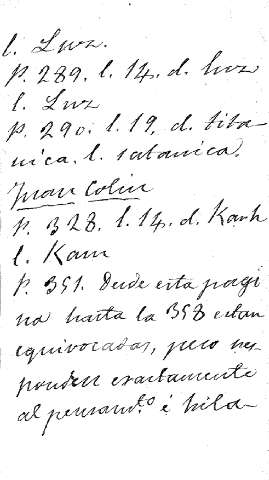 l. Luz.
P. 289. l. 14. d. luz
l. Luz
P. 290. l. 19. d. tita-
nica. l. satanica.
Juan Colin
P. 328. l. 14. d. Kanh
l. Kam
P. 351. Desde esta pagi
na hasta la 358 estan
equivocadas, pero res-
ponden exactamente
al pensamto é hila-